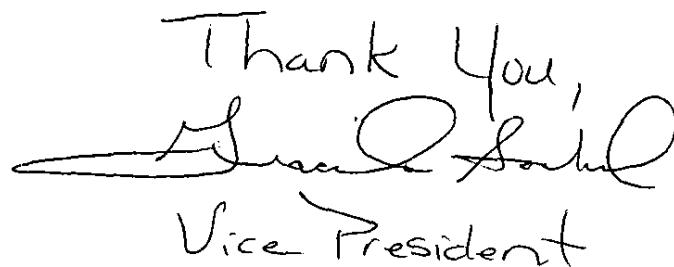 Thank You,
Vice President